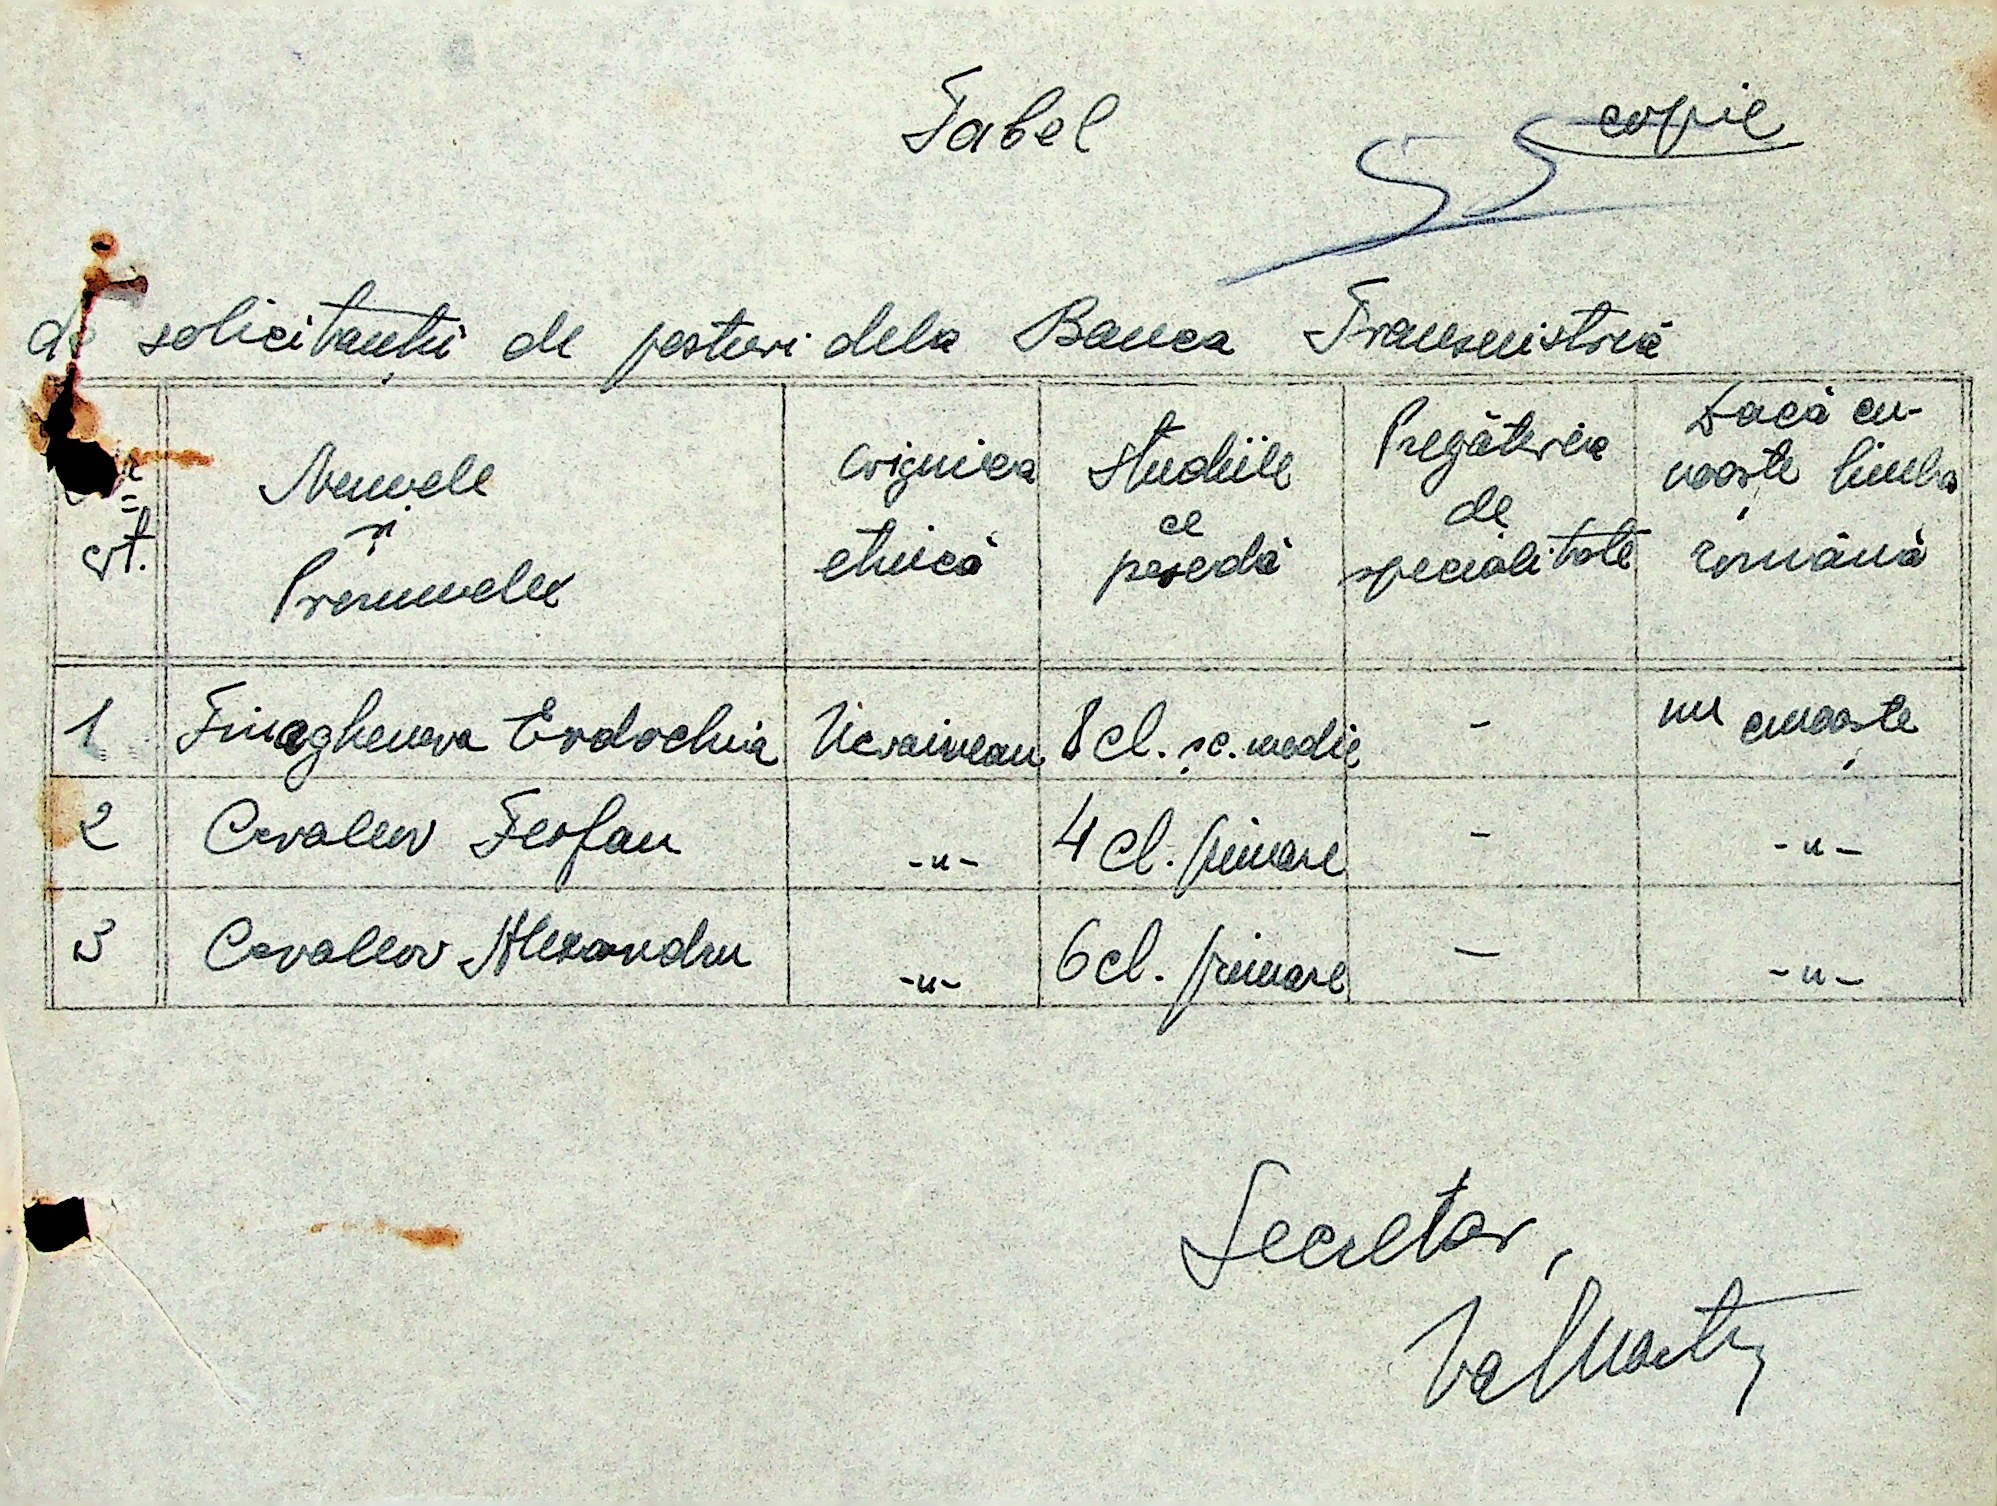 Tabel
copie
de solicitanții de posturi dela Banca Transnistria
crt.
Numele
și
Pronumele
originea
etnică
studiile
ce
posedă
Pregăterea
de
specialitate
Dacă cu-
noaște limba
română
1 Evdochia Ucraineau 8 cl. șc. medie - nu cunoaște
2 Covaleov Feofan -"- 4 cl. primare - -"-
3 Covaleov Alexandru -"- 6 cl. primare - -"-
Secretar,